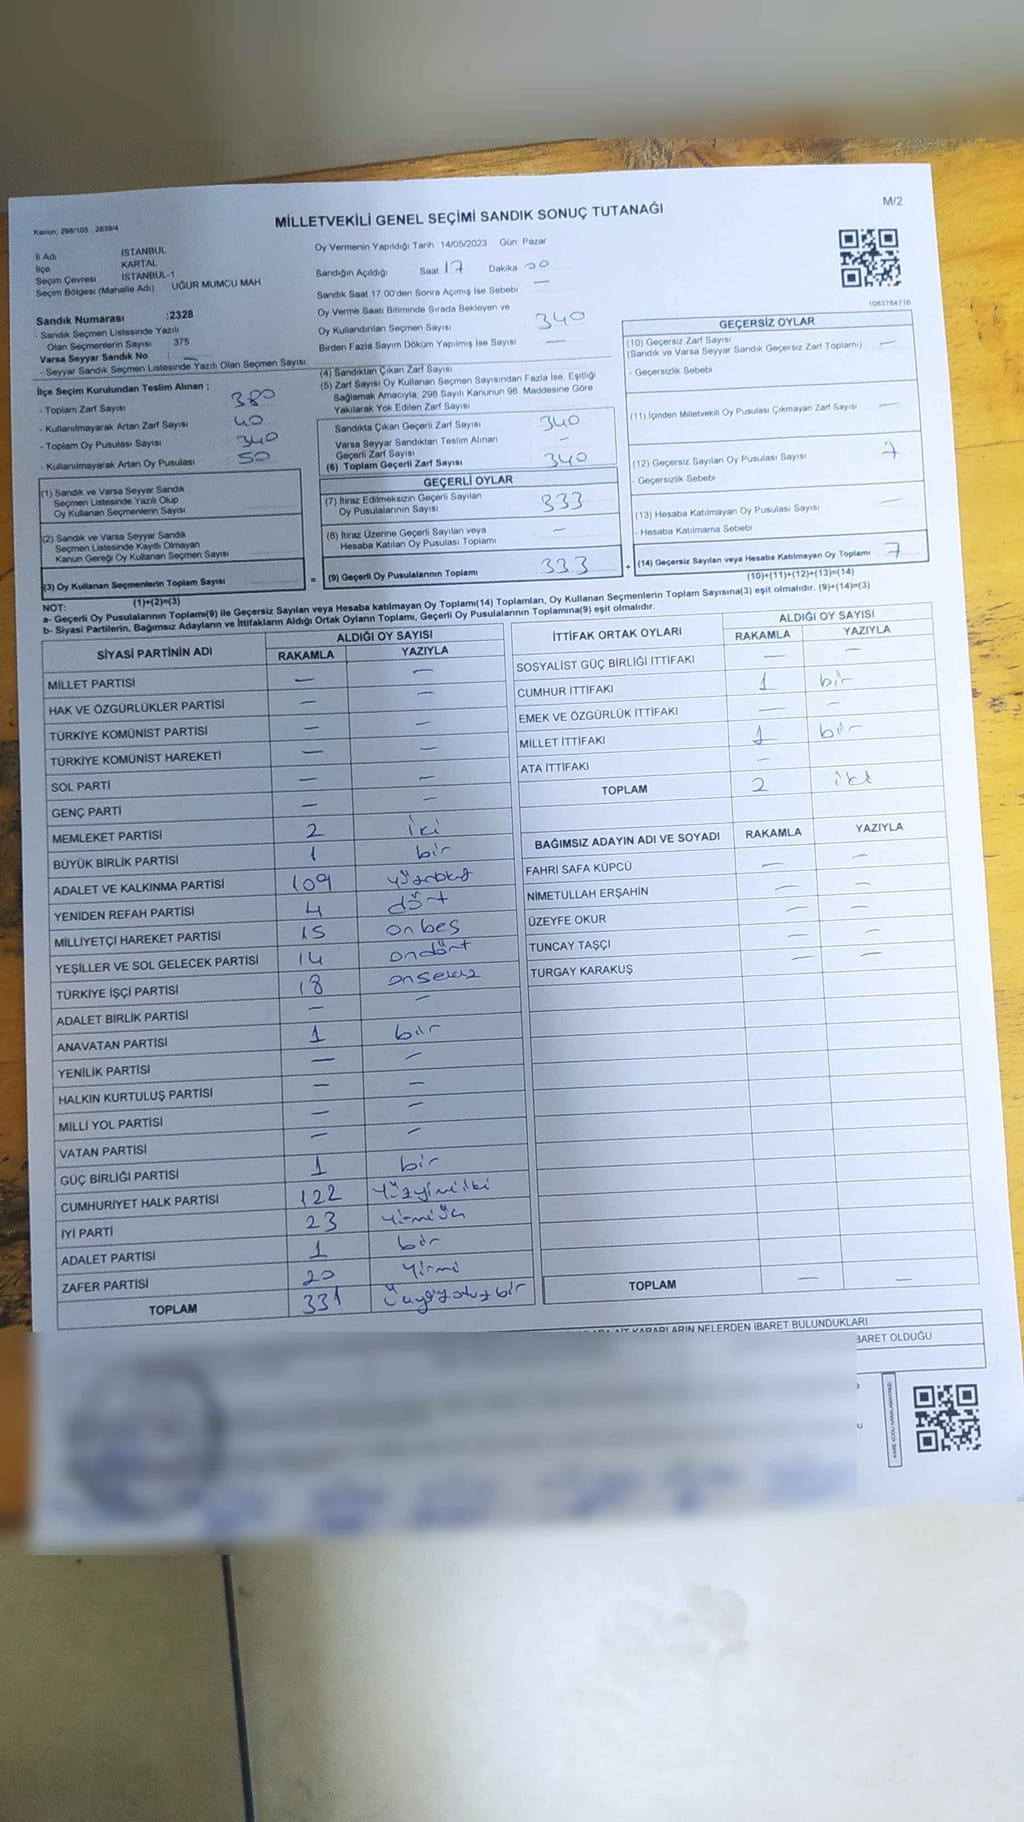 M/2
MİLLETVEKİLİ GENEL SEÇİMİ SANDIK SONUÇ TUTANAĞI
Kanun; 298/105 , 2839/4
İl Adı İSTANBUL
İlçe KARTAL
Seçim Çevresi : İSTANBUL-1
Seçim Bölgesi (Mahalle Adı) UĞUR MUMCU MAH
Sandık Numarası :2328
- Sandık Seçmen Listesinde Yazılı
Olan Seçmenlerin Sayısı 375
Varsa Seyyar Sandık No : —
- Seyyar Sandık Seçmen Listesinde Yazılı Olan Seçmen Sayısı
İlçe Seçim Kurulundan Teslim Alınan ;
- Toplam Zarf Sayısı 380
- Kullanılmayarak Artan Zarf Sayısı 40
- Toplam Oy Pusulası Sayısı 340
- Kullanılmayarak Artan Oy Pusulası 50
(1) Sandık ve Varsa Seyyar Sandık
Seçmen Listesinde Yazılı Olup
Oy Kullanan Seçmenlerin Sayısı
(2) Sandık ve Varsa Seyyar Sandık
Seçmen Listesinde Kayıtlı Olmayan
Kanun Gereği Oy Kullanan Seçmen Sayısı
(3) Oy Kullanan Seçmenlerin Toplam Sayısı
(1)+(2)=(3)
Oy Vermenin Yapıldığı Tarih 14/05/2023 Gün Pazar
Sandığın Açıldığı Saat 17 Dakika 00
Sandık Saat 17:00'den Sonra Açımış İse Sebebi —
Oy Verme Saati Bitiminde Sırada Bekleyen ve
Oy Kullandırılan Seçmen Sayısı 340
Birden Fazla Sayım Döküm Yapılmış İse Sayısı —
(4) Sandıktan Çıkan Zarf Sayısı
(5) Zarf Sayısı Oy Kullanan Seçmen Sayısından Fazla İse, Eşitliği
Bağlamak Amacıyla; 298 Sayılı Kanunun 98. Maddesine Göre
Yakılarak Yok Edilen Zarf Sayısı
Sandıkta Çıkan Geçerli Zarf Sayısı 340
Varsa Seyyar Sandıktan Teslim Alınan
Geçerli Zarf Sayısı —
(6) Toplam Geçerli Zarf Sayısı 340
GEÇERLİ OYLAR
(7) İtiraz Edilmeksizin Geçerli Sayılan
Oy Pusulalarının Sayısı 333
(8) İtiraz Üzerine Geçerli Sayılan veya
Hesaba Katılan Oy Pusulası Toplamı —
= (9) Geçerli Oy Pusulalarının Toplamı 333
1083784716
GEÇERSİZ OYLAR
(10) Geçersiz Zarf Sayısı —
(Sandık ve Varsa Seyyar Sandık Geçersiz Zarf Toplamı)
- Geçersizlik Sebebi
(11) İçinden Milletvekili Oy Pusulası Çıkmayan Zarf Sayısı —
(12) Geçersiz Sayılan Oy Pusulası Sayısı 7
- Geçersizlik Sebebi
(13) Hesaba Katılmayan Oy Pusulası Sayısı —
- Hesaba Katılmama Sebebi
+ (14) Geçersiz Sayılan veya Hesaba Katılmayan Oy Toplamı 7
(10)+(11)+(12)+(13)=(14)
NOT:
a- Geçerli Oy Pusulalarının Toplamı(9) ile Geçersiz Sayılan veya Hesaba katılmayan Oy Toplamı(14) Toplamları, Oy Kullanan Seçmenlerin Toplam Sayısına(3) eşit olmalıdır. (9)+(14)=(3)
b- Siyasi Partilerin, Bağımsız Adayların ve İttifakların Aldığı Ortak Oyların Toplamı, Geçerli Oy Pusulalarının Toplamına(9) eşit olmalıdır.
SİYASİ PARTİNİN ADI ALDIĞI OY SAYISI
RAKAMLA YAZIYLA
MİLLET PARTİSİ — —
HAK VE ÖZGÜRLÜKLER PARTİSİ — —
TÜRKİYE KOMÜNİST PARTİSİ — —
TÜRKİYE KOMÜNİST HAREKETİ — —
SOL PARTİ — —
GENÇ PARTİ — —
MEMLEKET PARTİSİ 2 iki
BÜYÜK BİRLİK PARTİSİ 1 bir
ADALET VE KALKINMA PARTİSİ 109
YENİDEN REFAH PARTİSİ 4 dört
MİLLİYETÇİ HAREKET PARTİSİ 15 onbeş
YEŞİLLER VE SOL GELECEK PARTİSİ 14 ondört
TÜRKİYE İŞÇİ PARTİSİ 18 onsekiz
ADALET BİRLİK PARTİSİ — —
ANAVATAN PARTİSİ 1 bir
YENİLİK PARTİSİ — —
HALKIN KURTULUŞ PARTİSİ — —
MİLLİ YOL PARTİSİ — —
VATAN PARTİSİ — —
GÜÇ BİRLİĞİ PARTİSİ 1 bir
CUMHURİYET HALK PARTİSİ 122 yüzyirmiiki
İYİ PARTİ 23 yirmiüç
ADALET PARTİSİ 1 bir
ZAFER PARTİSİ 20 yirmi
TOPLAM 331 üçyüzotuzbir
İTTİFAK ORTAK OYLARI ALDIĞI OY SAYISI
RAKAMLA YAZIYLA
SOSYALİST GÜÇ BİRLİĞİ İTTİFAKI — —
CUMHUR İTTİFAKI 1 bir
EMEK VE ÖZGÜRLÜK İTTİFAKI — —
MİLLET İTTİFAKI 1 bir
ATA İTTİFAKI —
TOPLAM 2 iki
BAĞIMSIZ ADAYIN ADI VE SOYADI RAKAMLA YAZIYLA
FAHRİ SAFA KÜPCÜ — —
NİMETULLAH ERŞAHİN — —
ÜZEYFE OKUR — —
TUNCAY TAŞÇI — —
TURGAY KARAKUŞ — —
TOPLAM — —
KARARLARIN NELERDEN İBARET BULUNDUKLARI
BARET OLDUĞU